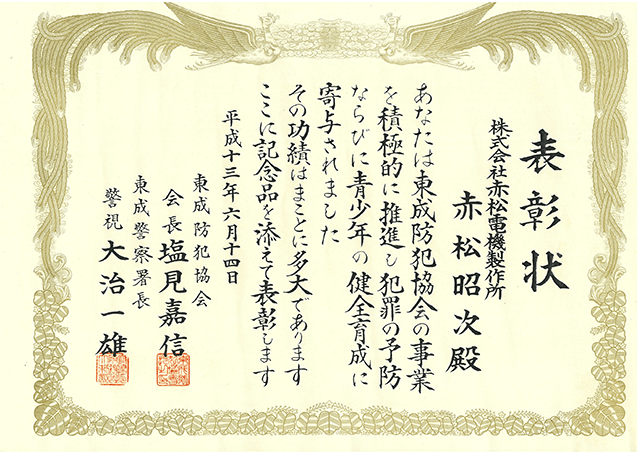 表彰状
株式会社赤松電機製作所
赤松昭次殿
あなたは東成防犯協会の事業
を積極的に推進し犯罪の予防
ならびに青少年の健全育成に
寄与されました
その功績はまことに多大であります
ここに記念品を添えて表彰します
平成十三年六月十四日
東成防犯協会
会長塩見嘉信
東成警察署長
警視大治一雄